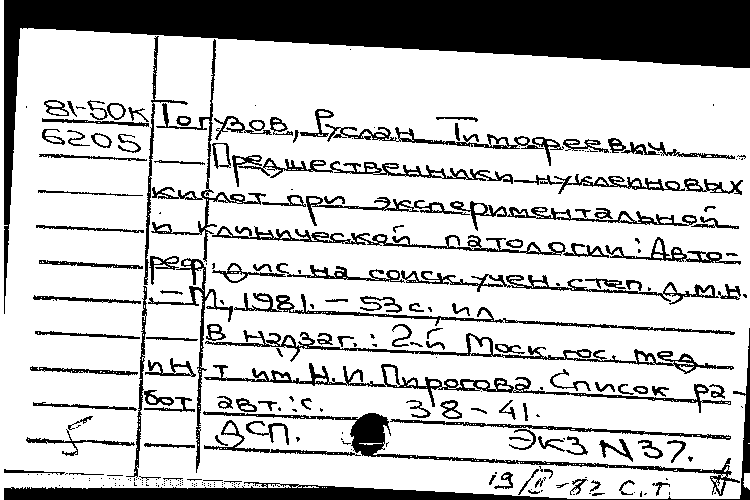 81-50к Тогузов, Руслан Тимофеевич.
6205
Предшественники нуклеиновых
кислот при экспериментальной
и клинической патологии: Авто-
реф. дис. на соиск. учен. степ. д.м.н.
. — М., 1981. — 53 с., ил.
В надзаг.: 2-й Моск. гос. мед.
ин-т им. Н.И. Пирогова. Список ра-
бот авт.: с. 38-41.
ДСП. Экз N 37.
19/II-82 С.Т.